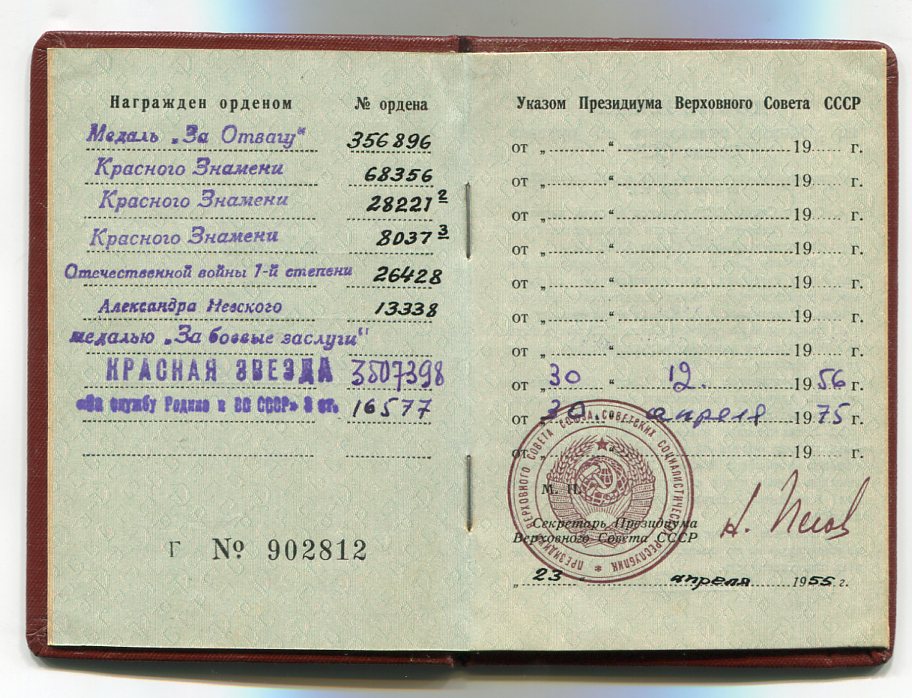 Награжден орденом № ордена
Медаль „За Отвагу" 356896
Красного Знамени 68356
Красного Знамени 28221 2
Красного Знамени 8037 3
Отечественной войны 1-й степени 26428
Александра Невского 13338
медалью „За боевые заслуги"
КРАСНАЯ ЗВЕЗДА 3507398
«За службу Родине в ВС СССР» 3 ст. 16577
Г № 902812
Указом Президиума Верховного Совета СССР
от „ “ 19 г.
от „ “ 19 г.
от „ “ 19 г.
от „ “ 19 г.
от „ “ 19 г.
от „ “ 19 г.
от „ “ 19 г.
от „30 “ 12. 1956 г.
от „30 “ апреля 1975 г.
от „ “ 19 г.
М. П.
Секретарь Президиума
Верховного Совета СССР
„ 23 “ апреля 1955 г.
ПРЕЗИДИУМ ВЕРХОВНОГО СОВЕТА СОЮЗА СОВЕТСКИХ СОЦИАЛИСТИЧЕСКИХ РЕСПУБЛИК